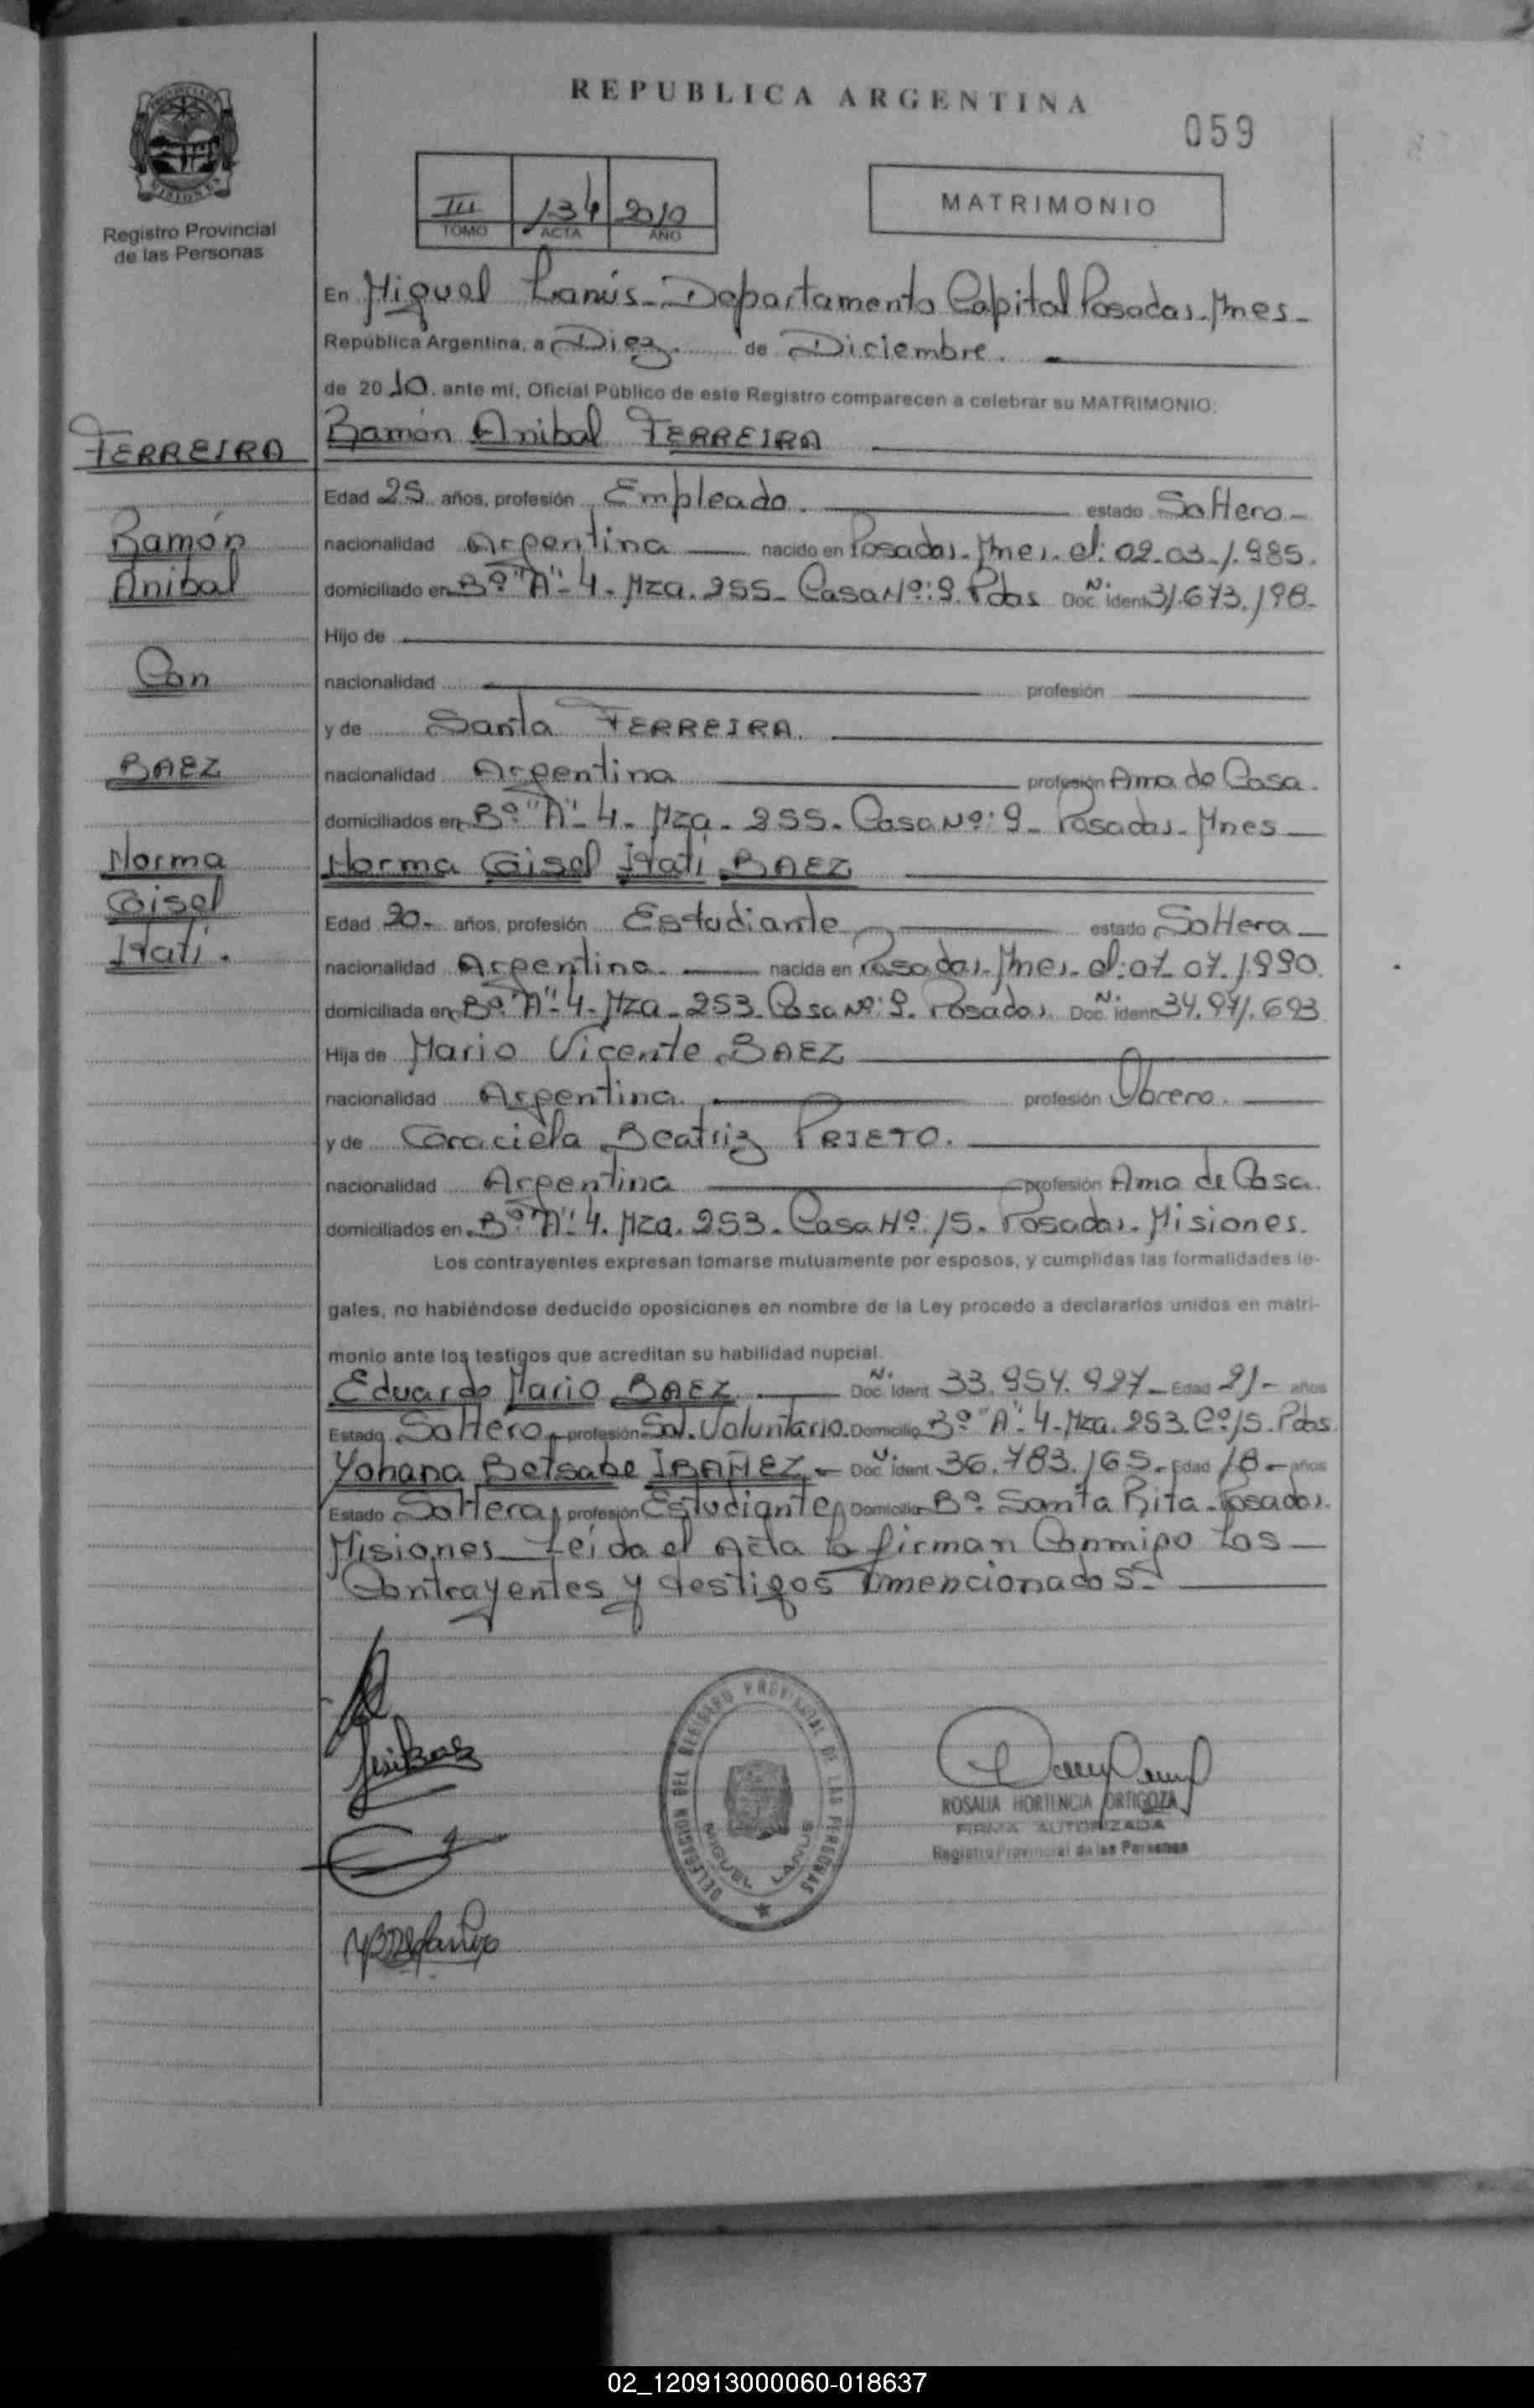 REPUBLICA ARGENTINA
059
PROVINCIA DE MISIONES
Registro Provincial
de las Personas
III 134 2010
TOMO ACTA AÑO
MATRIMONIO
En Miguel Lanús - Departamento Capital Posadas - Mnes -
República Argentina, a Diez de Diciembre.
de 2010. ante mí, Oficial Público de este Registro comparecen a celebrar su MATRIMONIO:
FERREIRA
Ramón
Anibal
Con
BAEZ
Norma
Gisel
Itatí.
Ramón Anibal FERREIRA
Edad 25 años, profesión Empleado. estado Soltero -
nacionalidad Argentina nacido en Posadas - Mnes - el: 02-03-1985.
domiciliado en Bº "A" - 4 - Mza. 255 - Casa Nº: 9. Pdas Doc. Ident Nº 31.673.198 -
Hijo de
nacionalidad profesión
y de Santa FERREIRA.
nacionalidad Argentina profesión Ama de Casa.
domiciliados en Bº "A" - 4 - Mza - 255 - Casa Nº: 9 - Posadas - Mnes
Norma Gisel Itatí BAEZ
Edad 20 - años, profesión Estudiante estado Soltera
nacionalidad Argentina nacida en Posadas - Mnes - el: 07-07-1990.
domiciliada en Bº "A" - 4 - Mza - 253 Casa Nº: 9. Posadas. Doc. Ident Nº 34.971.693
Hija de Mario Vicente BAEZ
nacionalidad Argentina. profesión Obrero.
y de Graciela Beatriz PRIETO.
nacionalidad Argentina profesión Ama de Casa.
domiciliados en Bº "A" - 4. Mza. 253 - Casa Nº: 15 - Posadas - Misiones.
Los contrayentes expresan tomarse mutuamente por esposos, y cumplidas las formalidades le-
gales, no habiéndose deducido oposiciones en nombre de la Ley procedo a declararlos unidos en matri-
monio ante los testigos que acreditan su habilidad nupcial.
Eduardo Mario BAEZ. Doc. Ident Nº 33.954.927 - Edad 21 - años
Estado Soltero, profesión Sol. Voluntario. Domicilio Bº "A" - 4 - Mza. 253. Cº 15. Pdas.
Yohana Betsabe IBAÑEZ, - Doc. Ident Nº 36.783.165 - Edad 18 - años
Estado Soltera, profesión Estudiante, Domicilio Bº Santa Rita - Posadas.
Misiones - Leída el Acta la firman Conmigo Los
Contrayentes y testigos mencionados -
DELEGACION DEL REGISTRO PROVINCIAL DE LAS PERSONAS
MIGUEL LANUS
ROSALIA HORTENCIA ORTIGOZA
FIRMA AUTORIZADA
Registro Provincial de las Personas
02_120913000060-018637